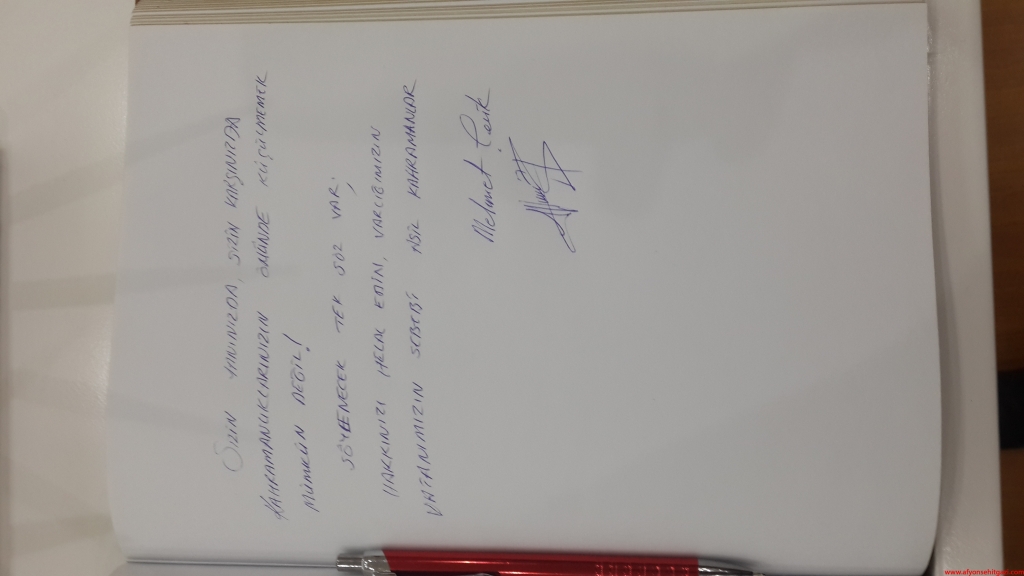 SİZİN YANINIZDA, SİZİN KARŞINIZDA
KAHRAMANLIKLARINIZIN ÖNÜNDE KÜÇÜLMEMEK
MÜMKÜN DEĞİL!
SÖYLENECEK TEK SÖZ VAR;
HAKKINIZI HELAL EDİN, VARLIĞIMIZIN
VATANIMIZIN SEBEBİ ASİL KAHRAMANLAR
Mehmet
www.afyonsehitgazi.com